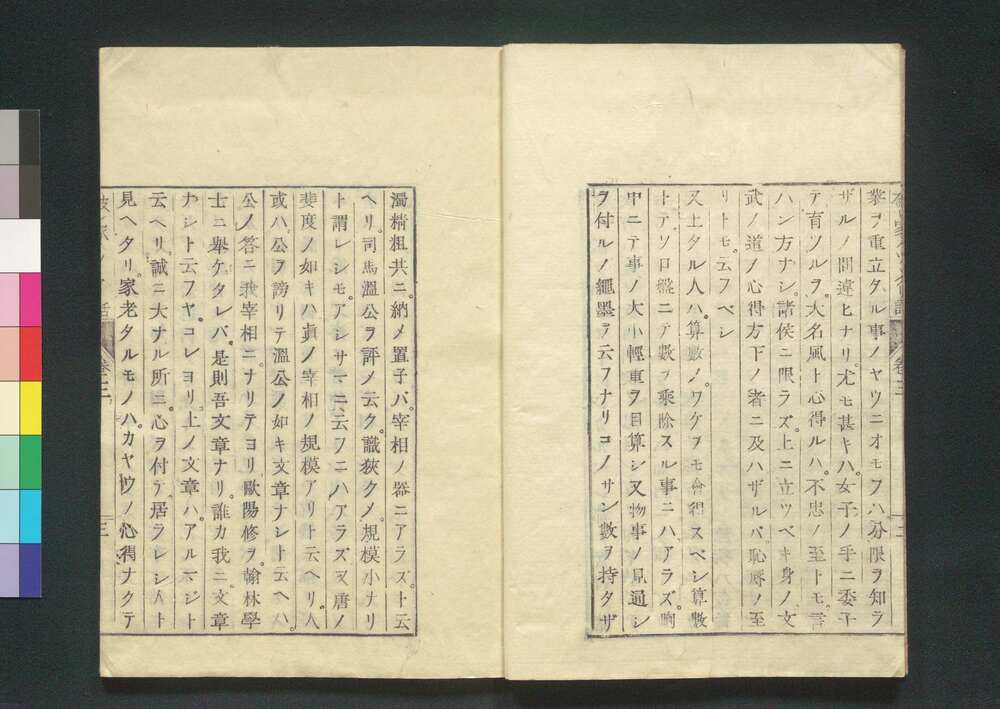 黎ヲ重立タル事ノヤウニオモフハ分限ヲ知ラ
ザルノ間違ヒナリ。尤モ甚キハ。女子ノ手ニ委子
テ育ツルヲ。大名風ト心得ルハ。不忠ノ至トモ。言
ハン方ナシ。諸侯ニ限ラズ。上ニ立ツベキ身ノ文
武ノ道ノ心得方下ノ者ニ及ハザルバ。恥辱ノ至
リトモ。云フベシ
又上タル人ハ。算数ノ。ワケヲモ會得スベシ算数
トテソロ盤ニテ数ヲ乘除スル事ニハ。アラズ。胸
中ニテ事ノ大小輕重ヲ目算シ又物事ノ見通シ
ヲ付ルノ繩墨ヲ云フナリコノサン数ヲ持タザ
卷三
三
濁精粗共ニ。納メ置子バ。宰相ノ器ニアラズ。ト云
ヘリ。司馬溫公ヲ評メ云ク。識狹クメ。規模小ナリ
ト謂レシモ。アシサマニ云フニハアラズ又唐ノ
裴度ノ如キハ眞ノ宰相ノ規模アリト云ヘリ。人
或ハ公ヲ謗リテ溫公ノ如キ文章ナシト云ヘハ。
公ノ答ニ我宰相ニナリテヨリ歐陽修ヲ。翰林學
士ニ舉ケタレバ。是則吾文章ナリ。誰カ我ニ。文章
ナシト云フヤ。コレヨリ。上ノ文章ハ。アルマジト
云ヘリ。誠ニ大ナル所ニ心ヲ付テ。居ラレシ人ト
見ヘタリ。家老タルモノハ。カヤウノ心得ナクテ
卷三
三